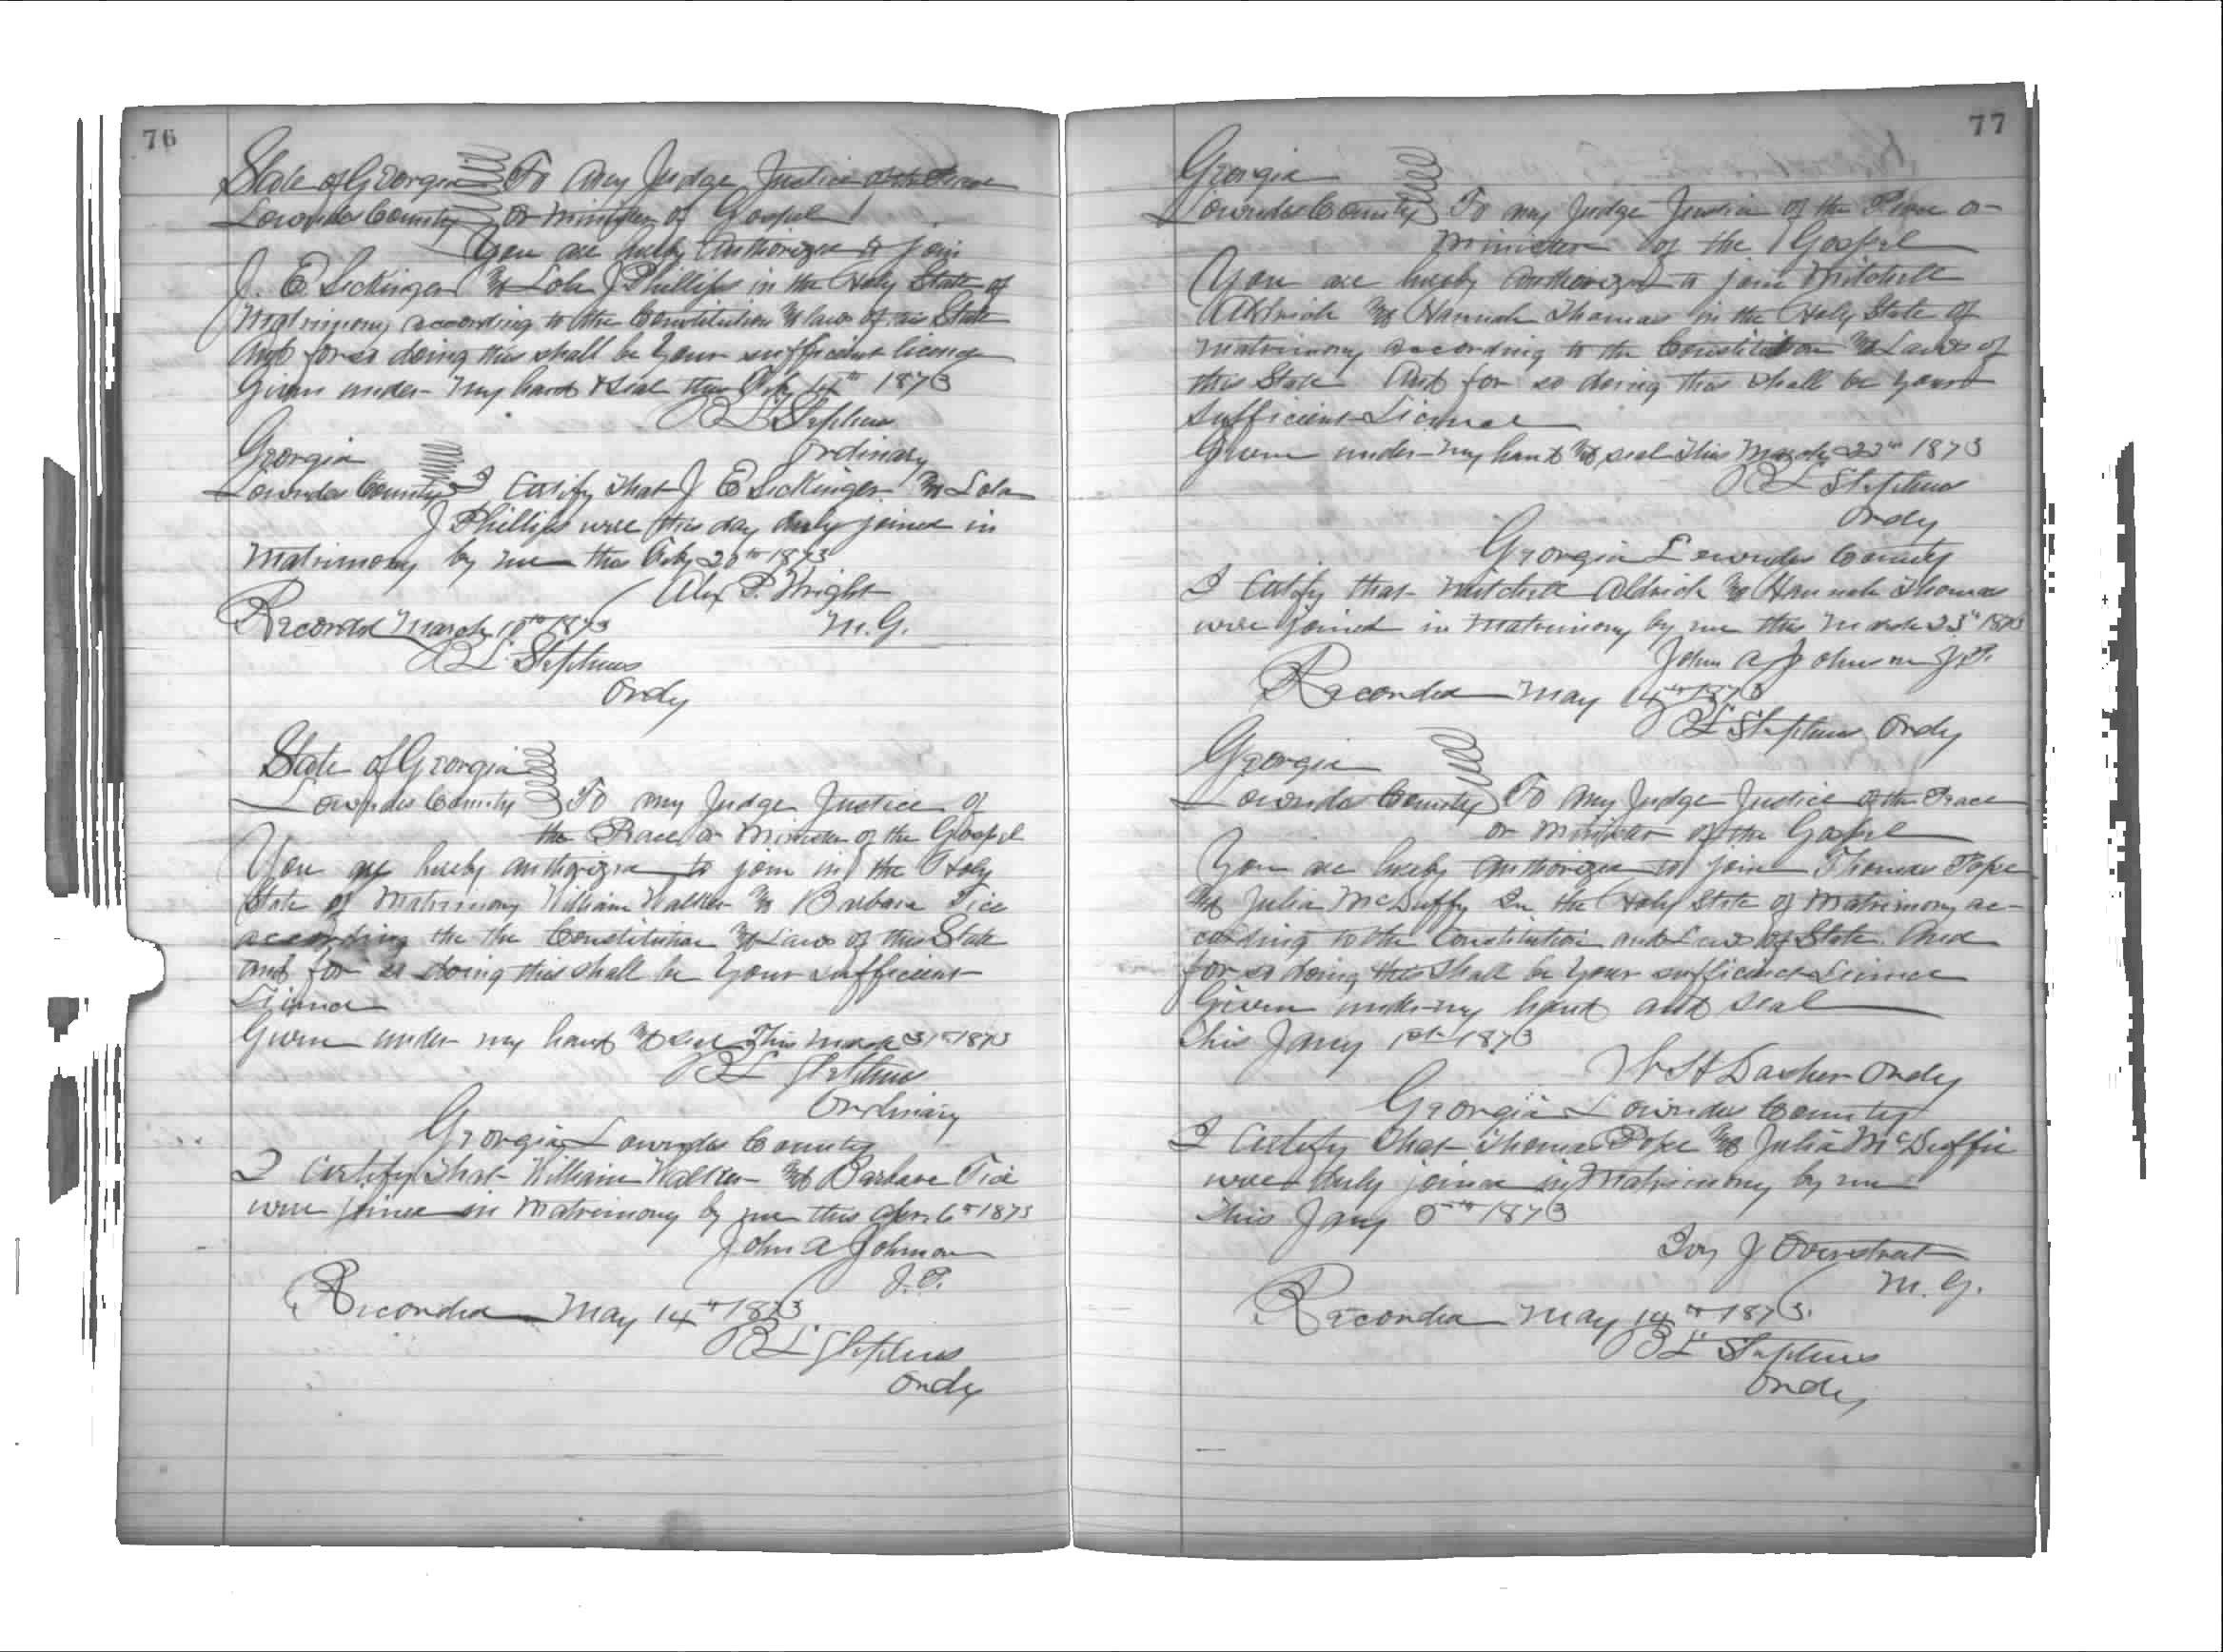 76
State of Georgia To any Judge Justice of the Peace
Lowndes County or Minister of Gospel
You are hereby Authorized to join
J. E Sickinger & Lola J Phillips in the Holy State of
Matrimony according to the Constitution & laws of this State
And for so doing this shall be Your sufficient license
Given under my hand & seal this Feby 14th 1873
R L Stephens
Ordinary
Georgia
Lowndes County I Certify that J E Sickinger & Lola
J Phillips were this day duly joined in
Matrimony by me this Feby 20th 1873
Alex P. Wright
M. G.
Recorded March 10th 1873
R L Stephens
Ordy
State of Georgia
Lowndes County To any Judge Justice of
the Peace or Minister of the Gospel
You are hereby authorized to join in the Holy
State of Matrimony William Walker & Barbara Tice
according the the Constitution & Laws of this State
and for so doing this shall be Your sufficient
License
Given under my hand & seal This March 31st 1873
R L Stephens
Ordinary
Georgia Lowndes County
I Certify that William Walker & Barbara Tice
were joined in Matrimony by me this Apr. 6th 1873
John A Johnson
J. P.
Recorded May 14th 1873
R L Stephens
Ordy
77
Georgia
Lowndes County To any Judge Justice of the Peace or
Minister of the Gospel
You are hereby authorized to join Mitchell
Aldrich & Hannah Thomas in the Holy State of
Matrimony according to the Constitution & Laws of
this State And for so doing this shall be your
sufficient License
Given under my hand & seal This March 22nd 1873
R L Stephens
Ordy
Georgia Lowndes County
I Certify that Mitchell Aldrich & Hannah Thomas
were joined in Matrimony by me this March 23rd 1873
John A Johnson J. P.
Recorded May 14th 1873
R L Stephens Ordy
Georgia
Lownds County To Any Judge Justice of the Peace
or Minister of the Gospel
You are hereby Authorized to join Thomas Pope
& Julia McDuffy In the Holy State of Matrimony ac-
cording to the Constitution and Laws of State. And
for so doing this shall be Your sufficient License
Given under my hand and seal
This Jany 1st 1873
W H Dasher Ordy
Georgia Lowndes County
I Certify that Thomas Pope & Julia McDuffie
were duly joined in Matrimony by me
This Jany 5th 1873
Ivy J Overstreet
M. G.
Recorded May 14th 1873.
R L Stephens
Ordy